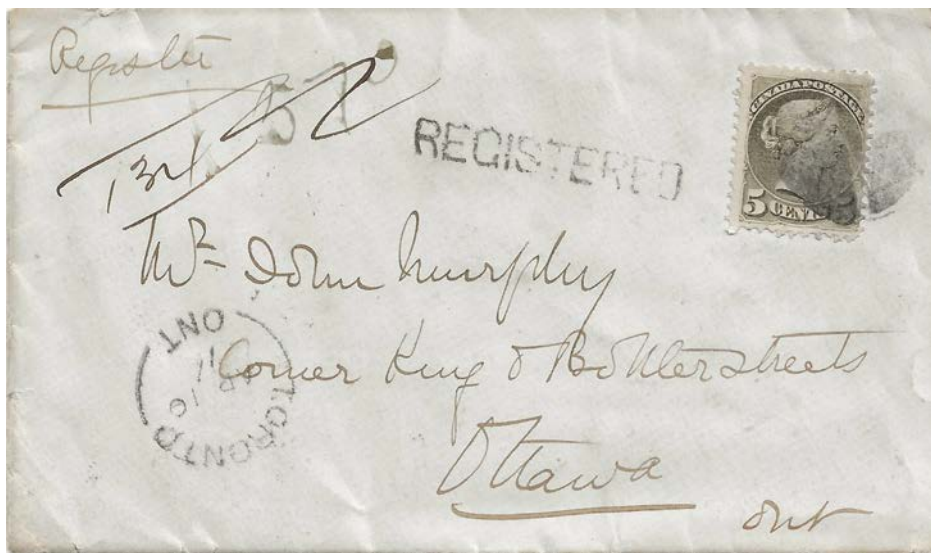 Register
REGISTERED
CANADA POSTAGE
5 CENTS
Mr John Murphy
Corner King & Bolton streets
Ottawa
Ont
TORONTO
ONT